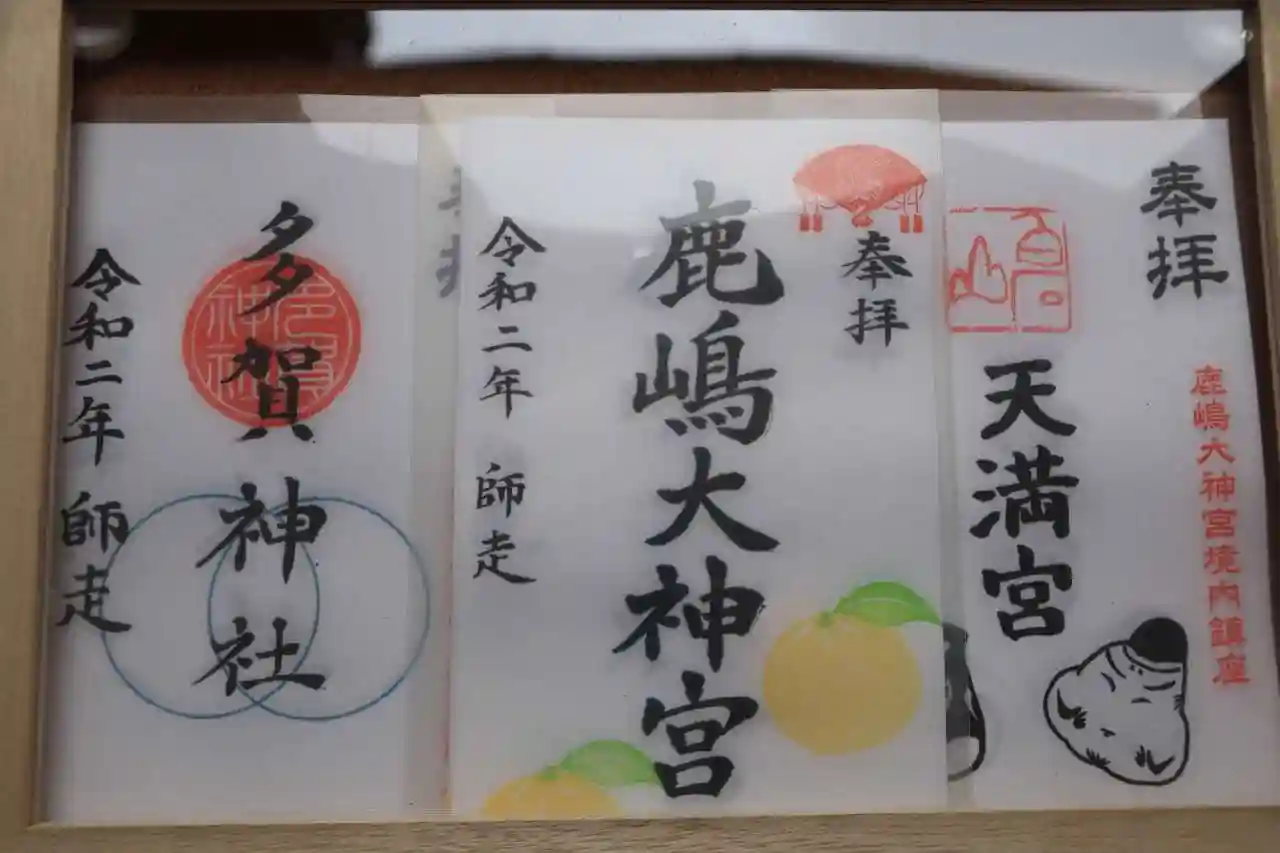 奉拝
鹿嶋大神宮境内鎮座
天満宮
奉拝
鹿嶋大神宮
令和二年 師走
多賀神社
令和二年 師走